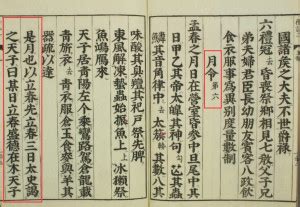 國諸侯之大夫不世爵祿
六禮冠去昏喪祭鄉相見七教父子兄
弟夫婦君臣長幼朋友賓客八政飲
食衣服事為異別度量數制
月令第六
孟春之月日在營室昏參中旦尾中其
日甲乙其帝太皥其神句芒其蟲
鱗其音角律中去太蔟其數八其
味酸其臭羶其祀戶祭先脾
東風解凍蟄蟲始振魚上冰獺祭
魚鴻鴈來
天子居青陽左个乘鸞路駕倉龍載
青旂衣去青衣服倉玉食麥與羊其
器疏以達
是月也以立春先立春三日太史謁
之天子曰某日立春盛德在木天子